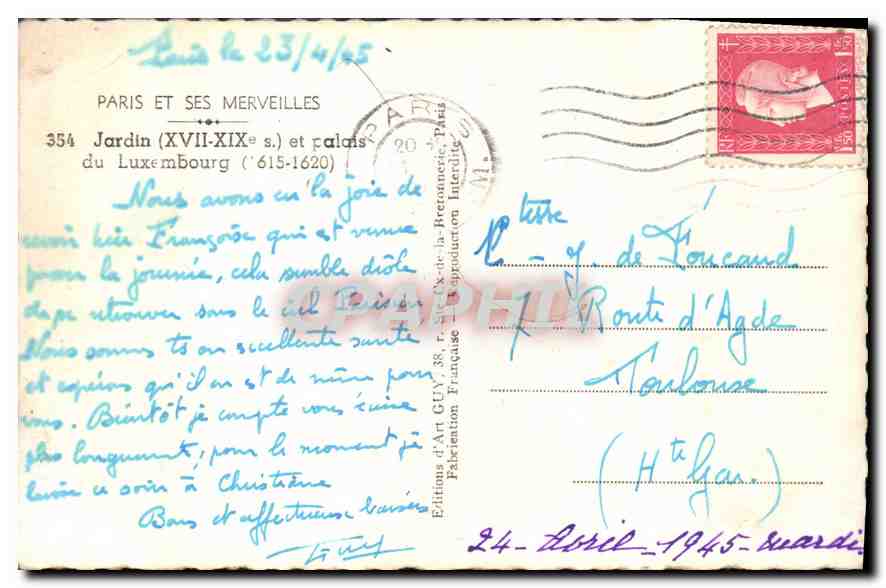 Paris le 23/4/45
PARIS ET SES MERVEILLES
354 Jardin (XVII-XIXe s.) et palais
du Luxembourg (1615-1620)
Nous avons eu la joie de
revoir hier Françoise qui est venue
pour la journée, cela semble drôle
de se retrouver sous le ciel Parisien,
Nous sommes ts en excellente santé
et espérons qu'il en est de même pour
vous. Bientôt je compte vous écrire
plus longuement, pour le moment je
laisse ce soin à Christiane
Bons et affectueux baisers
Guy
Editions d'Art GUY, 38, r. Ste-Cx-de-la-Bretonnerie, Paris
Fabrication Française - Reproduction Interdite
PARIS
20
RF
POSTES
1F50
1F50
PAPHIL
Ctesse
J. de Foucaud
7 Route d'Agde
Toulouse
(Hte Gar.)
24 - Avril - 1945 - mardi